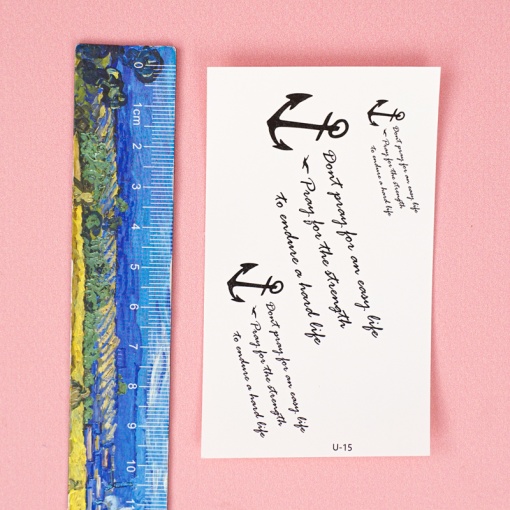 0
1cm
2
3
4
5
6
7
8
9
10
Dont pray for an easy life
Pray for the strength
to endure a hard life
Dont pray for an easy life
Pray for the strength
to endure a hard life
Dont pray for an easy life
Pray for the strength
to endure a hard life
U-15